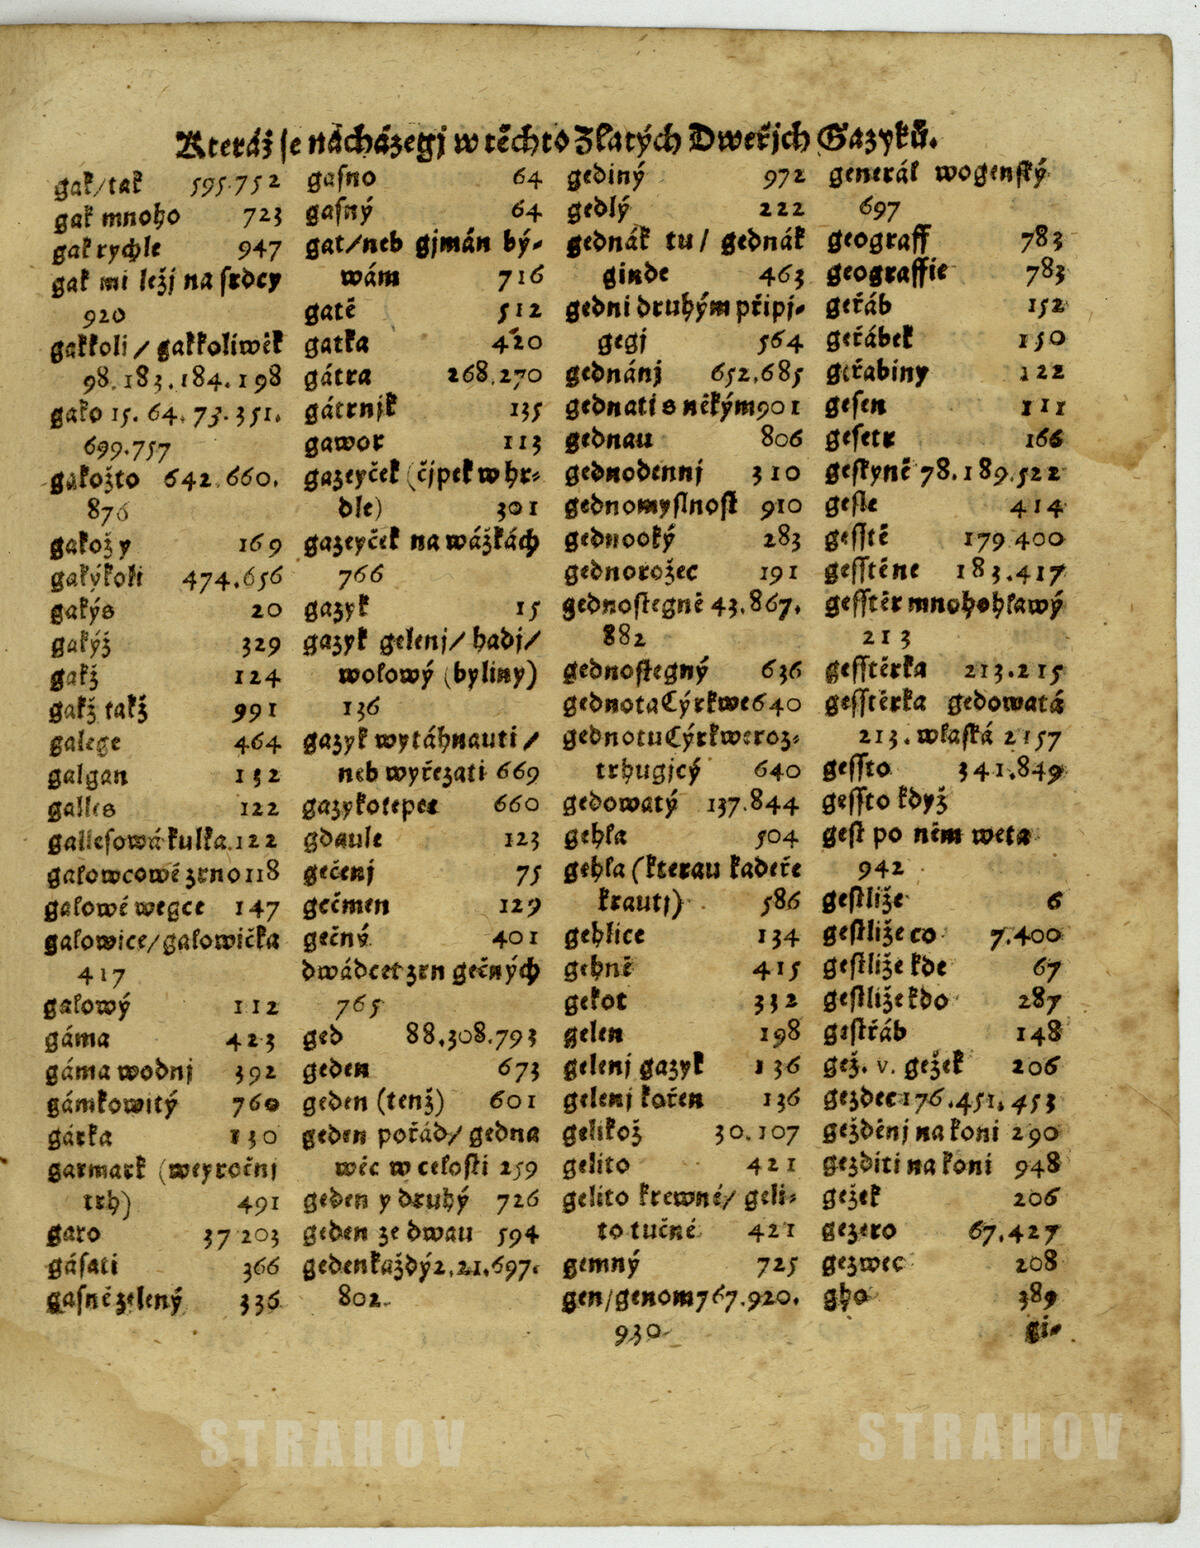 Kteráž se nácházegj w těchto Zlatých Dweřjch Gazyků.
gak/tak 595.752
gak mnoho 723
gak rychle 947
gak mi ležj na srdcy
920
gakkoli / gakkoliwěk
98.183.184.198
gako 15. 64. 73. 351.
699.757
gakožto 642.660.
876
gakož y 169
gakýkoli 474.656
gakýs 20
gakýž 329
gakž 124
gakž takž 991
galege 464
galgan 132
galles 122
gallesowá kulka.122
galowcowé zrno 118
galowé wegce 147
galowice/galowička
417
galowý 112
gáma 423
gáma wodnj 392
gámkowitý 760
gárka 130
garmark (weyročnj
trh) 491
garo 37 203
gásati 366
gasně zelený 336
gasno 64
gasný 64
gat/neb gjmán bý-
wám 716
gatě 512
gatka 420
gátra 268.270
gátrnjk 135
gawor 113
gazeyček (čjpek w hr-
dle) 301
gazeyček na wážkách
766
gazyk 15
gazyk gelenj/hadj/
wolowý (byliny)
136
gazyk wytáhnauti /
neb wyřezati 669
gazykotepec 660
gdaule 123
gečenj 75
gečmen 129
gečný 401
dwádcet zrn gečných
765
ged 88.308.793
geden 673
geden (tenž) 601
geden pořád/gedna
wěc w celosti 259
geden y druhý 726
geden ze dwau 594
gedenkaždý 2.21.697.
802.
gediný 972
gedlý 222
gednák tu / gednák
ginde 463
gedni druhým připj-
gegj 564
gednánj 652.685
gednati s někým 901
gednau 806
gednodennj 310
gednomyslnost 910
gednooký 283
gednorožec 191
gednostegně 43.867.
882
gednostegný 636
gednota Cýrkwe 640
gednotu Cýrkwe roz-
trhugjcý 640
gedowatý 137.844
gehla 504
gehla (kterau kadeře
krautj) 586
gehlice 134
gehně 415
gekot 332
gelen 198
gelenj gazyk 136
gelenj kořen 136
gelikož 30.107
gelito 421
gelito krewné/geli-
to tučné 421
gemný 725
gen/genom 767.920.
930
generál wogenský
697
geograff 783
geograffie 783
geřáb 152
geřábek 150
geřabiny 122
gesen 111
gesetr 166
geskyně 78.189.522
gesle 414
gesstě 179 400
gesstěne 183.417
gesstěr mnohohlawý
213
gesstěrka 213.215
gesstěrka gedowatá
213. wlaská 2157
gessto 341.849
gessto když
gest po něm weta
942
gestliže 6
gestliže co 7.400
gestliže kde 67
gestliže kdo 287
gestřáb 148
gež. v. gežek 206
gezdec 176.451.453
gežděnj na koni 290
gezditi na koni 948
gežek 206
gezero 67.427
gezwec 208
gho 389
gi-
STRAHOV
STRAHOV